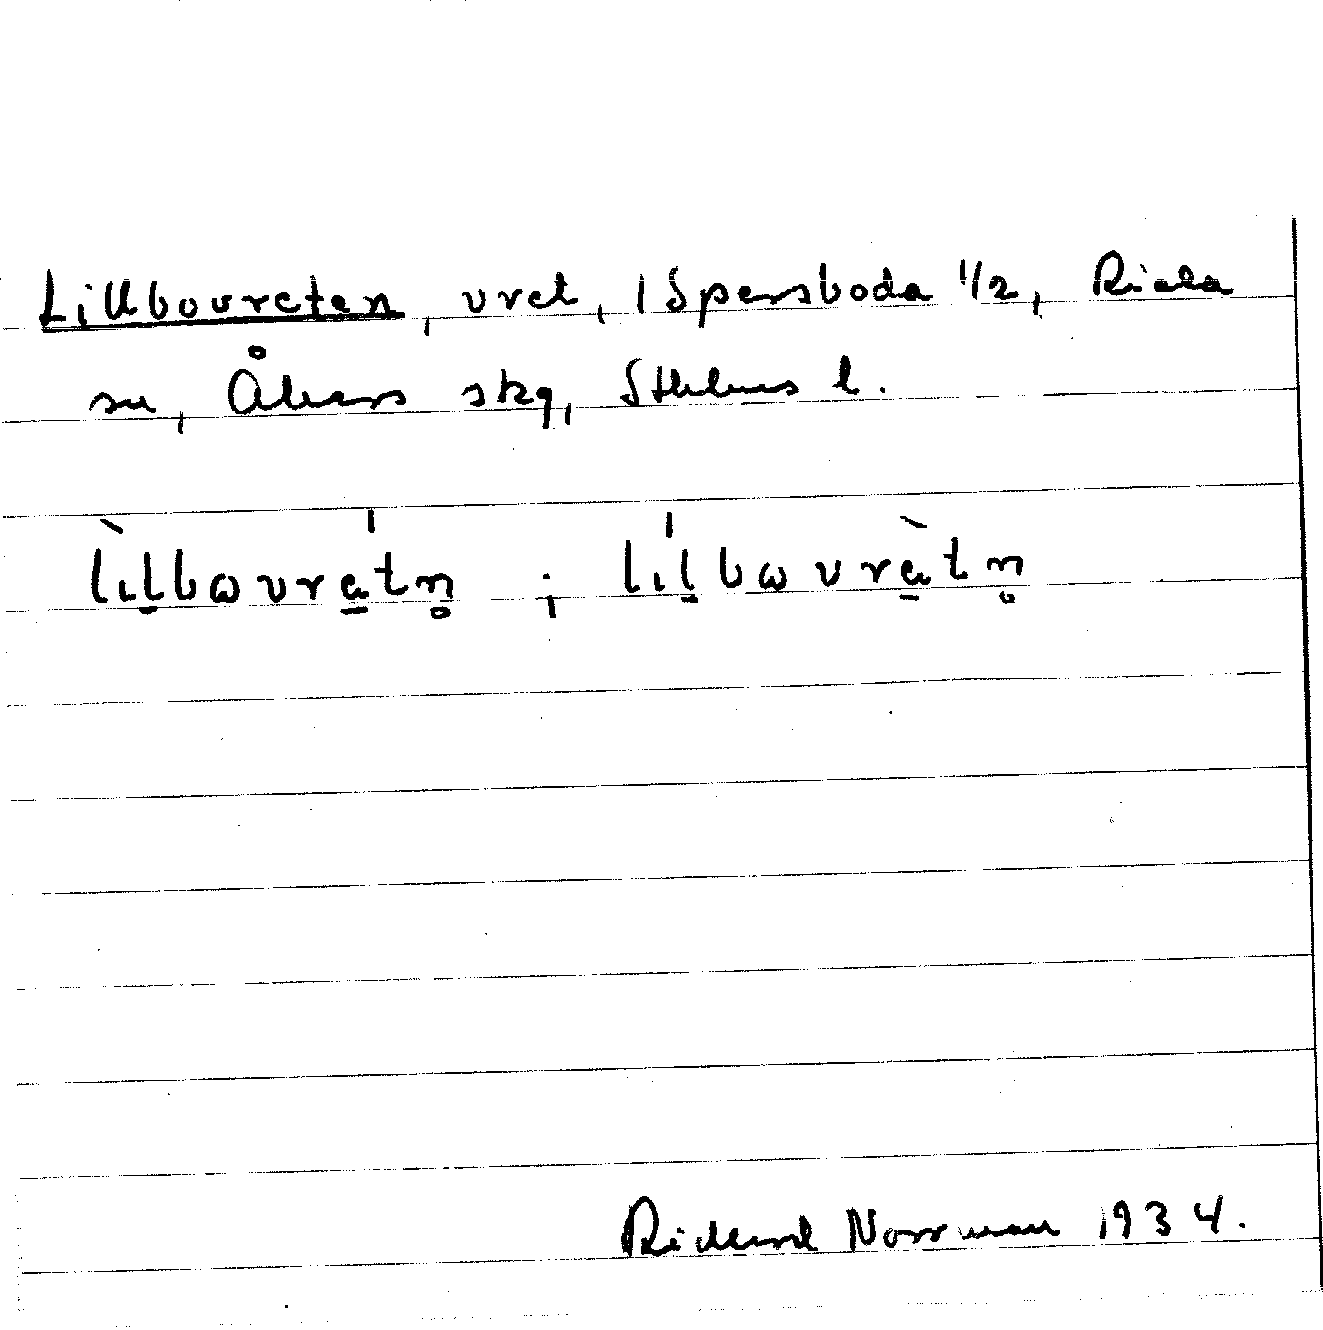 Lillbovreten, vret, Ispersboda 1/2, Riala
sn, Åkers skg, Sthlms l.
lìlbωvrat́n̥ ; lílbωvràtn̥
Rickard Norrman 1934.